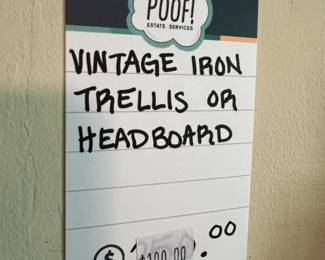 POOF!
ESTATE SERVICES
VINTAGE IRON
TRELLIS OR
HEADBOARD
$100.00
.00